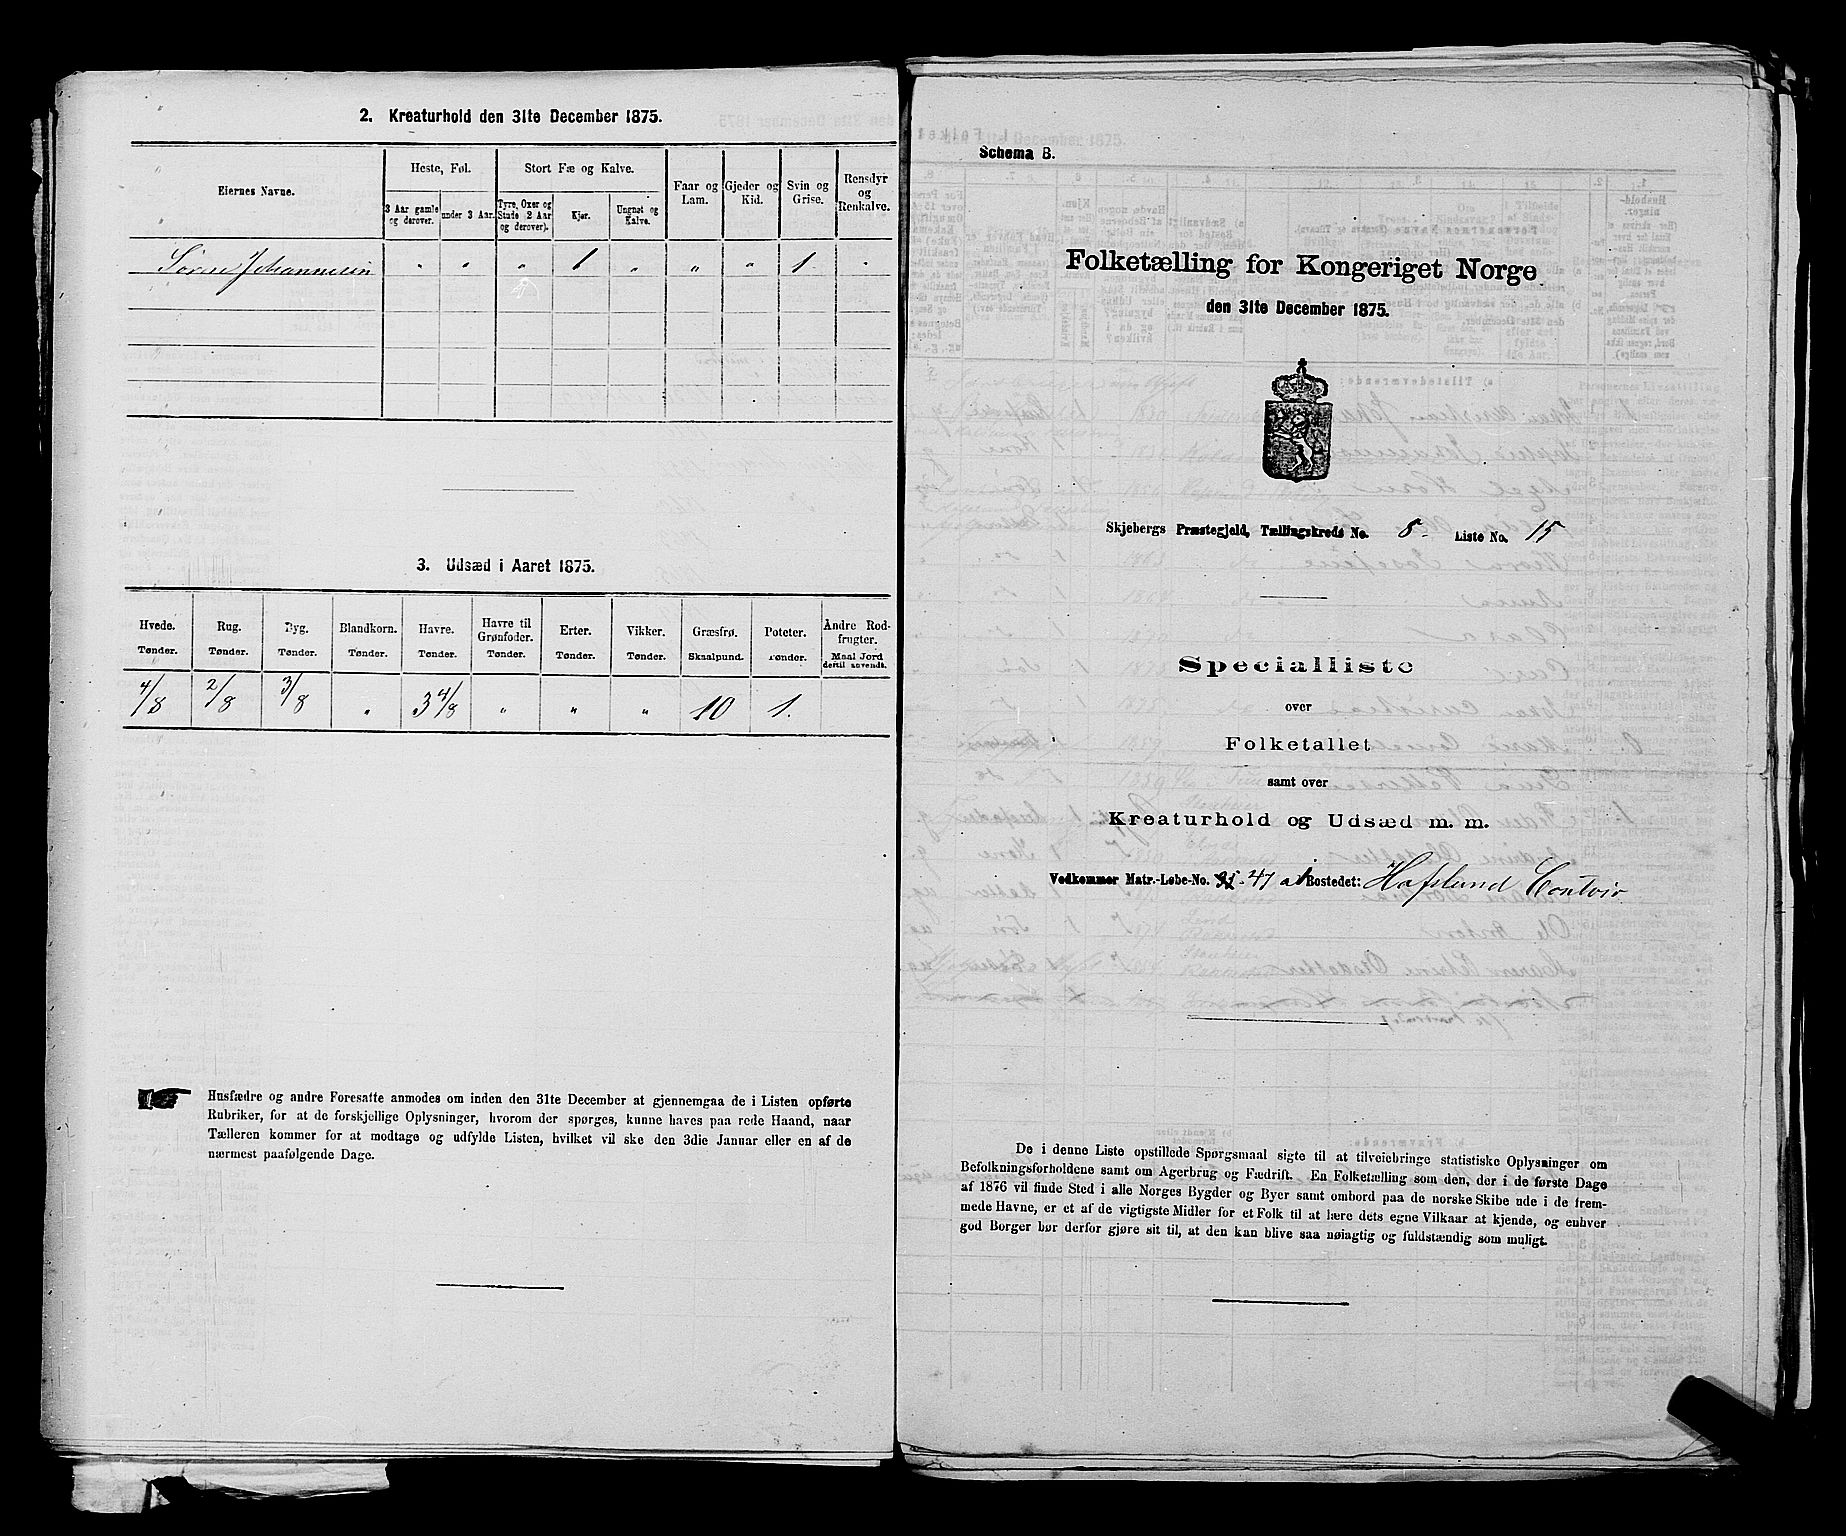 2. Kreaturhold den 31te December 1875.
Eiernes Navne.
Heste, Føl.
3 Aar gamle og derover.
under 3 Aar.
Stort Fæ og Kalve.
Tyre, Oxer og Stude 2 Aar og derover).
Kjør.
Ungnøt og Kalve.
Faar og Lam.
Gjeder og Kid.
Svin og Grise.
Rensdyr og Renkalve.
Søren Johannesen " " " 1 " " " 1 "
3. Udsæd i Aaret 1875.
Hvede. Rug. Byg. Blandkorn. Havre. Havre til Grønfoder. Erter. Vikker. Græsfrø. Poteter. Andre Rodfrugter.
Tønder. Tønder. Tønder. Tønder. Tønder. Tønder. Tønder. Tønder. Skaalpund. Tønder. Maal Jord dertil anvendt.
4/8 2/8 3/8 " 3 4/8 " " " 10 1.
Husfædre og andre Foresatte anmodes om inden den 31te December at gjennemgaa de i Listen opførte
Rubriker, for at de forskjellige Oplysninger, hvorom der spørges, kunne haves paa rede Haand, naar
Tælleren kommer for at modtage og udfylde Listen, hvilket vil ske den 3die Januar eller en af de
nærmest paafølgende Dage.
Schema B.
Folketælling for Kongeriget Norge
den 31te December 1875.
Skjebergs Præstegjeld, Tællingskreds No. 8. Liste No. 15
Specialliste
over
Folketallet
samt over
Kreaturhold og Udsæd m. m.
Vedkommer Matr.-Løbe-No. 41 Bostedet: Hafslund Contoir
De i denne Liste opstillede Spørgsmaal sigte til at tilveiebringe statistiske Oplysninger om
Befolkningsforholdene samt om Agerbrug og Fædrift. En Folketælling som den, der i de første Dage
af 1876 vil finde Sted i alle Norges Bygder og Byer samt ombord paa de norske Skibe ude i de frem-
mede Havne, er et af de vigtigste Midler for et Folk til at lære dets egne Vilkaar at kjende, og enhver
god Borger bør derfor gjøre sit til, at den kan blive saa nøiagtig og fuldstændig som muligt.